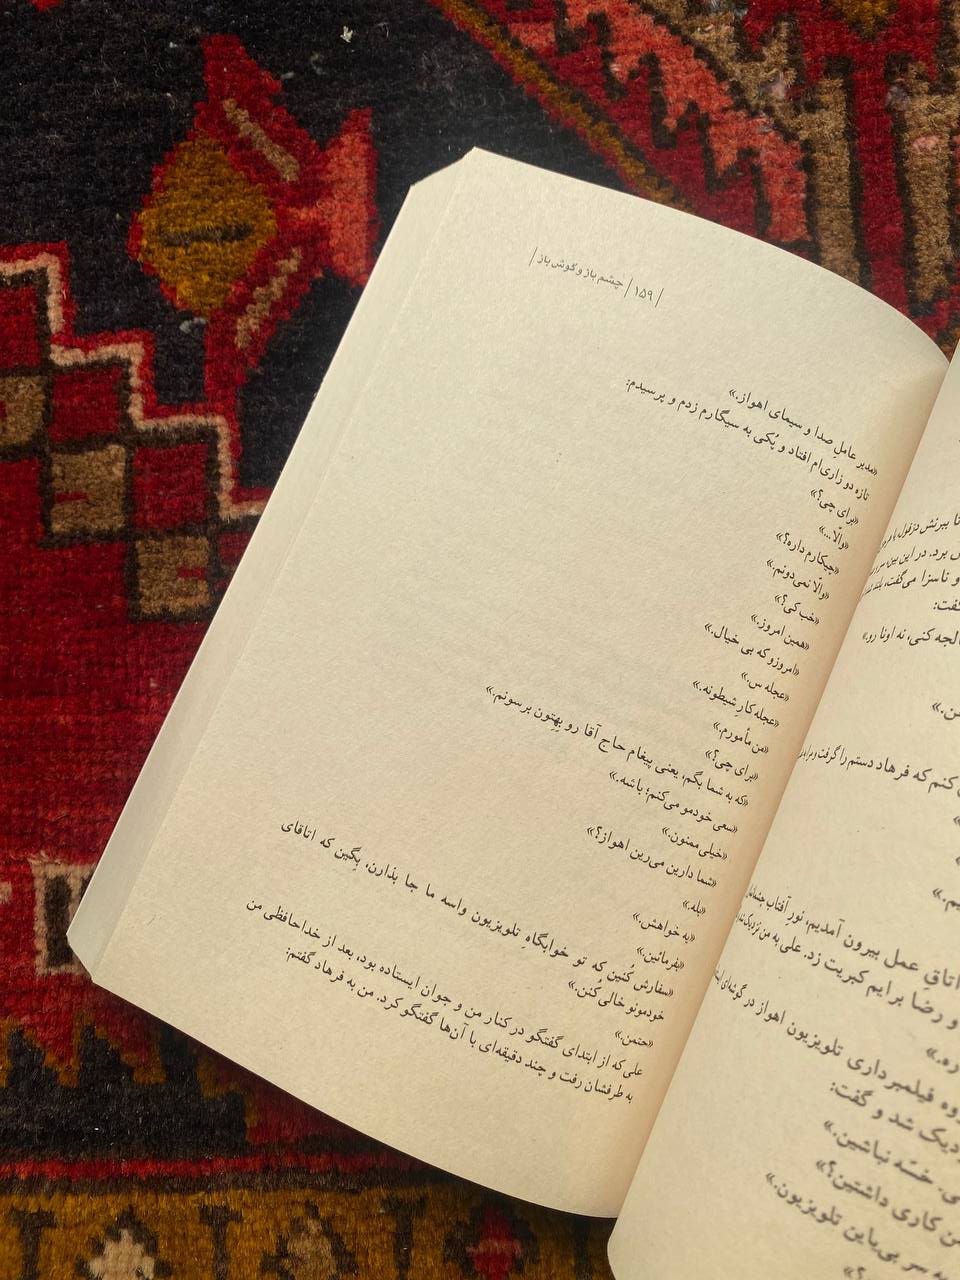 | ۱۵۹ | چشم باز و گوش باز |
«مدیر عاملِ صدا و سیمای اهواز.»
تازه دوزاری‌ام افتاد و پُکی به سیگارم زدم و پرسیدم:
«برای چی؟»
«والّا...»
«چیکارم داره؟»
«والّا نمی‌دونم.»
«خب کی؟»
«همین امروز.»
«امروزو که بی خیال.»
«عجله س.»
«عجله کارِ شیطونه.»
«من مأمورم.»
«برای چی؟»
«که به شما بگم، یعنی پیغام حاج آقا رو بِهِتون برسونم.»
«سعی خودمو می‌کنم؛ باشه.»
«خیلی ممنون.»
«شما دارین می‌رین اهواز؟»
«بله.»
«یه خواهش.»
«بفرمائین.»
«سفارش کُنین که تو خوابگاهِ تلویزیون واسه ما جا بذارن، بِگین که اتاقای
خودمونو خالی کُنن.»
«حتمن.»
علی که از ابتدای گفتگو در کنار من و جوان ایستاده بود، بعد از خداحافظی من
به طرفشان رفت و چند دقیقه‌ای با آن‌ها گفتگو کرد. من به فرهاد گفتم:
برد. در این بین، سر و
و ناسزا می‌گفت، بلند
گفت:
کنی، نه اونا رو.»
کنم که فرهاد دستم را گرفت و
اتاقِ عمل بیرون آمدیم، نورِ آفتاب
و رضا برایم کبریت زد. علی به من نزدیک
فیلمبرداری تلویزیون اهواز در گوشه‌ای
شد و گفت:
خسّه نباشین.»
کاری داشتین؟»
سر بی‌یاین تلویزیون.»